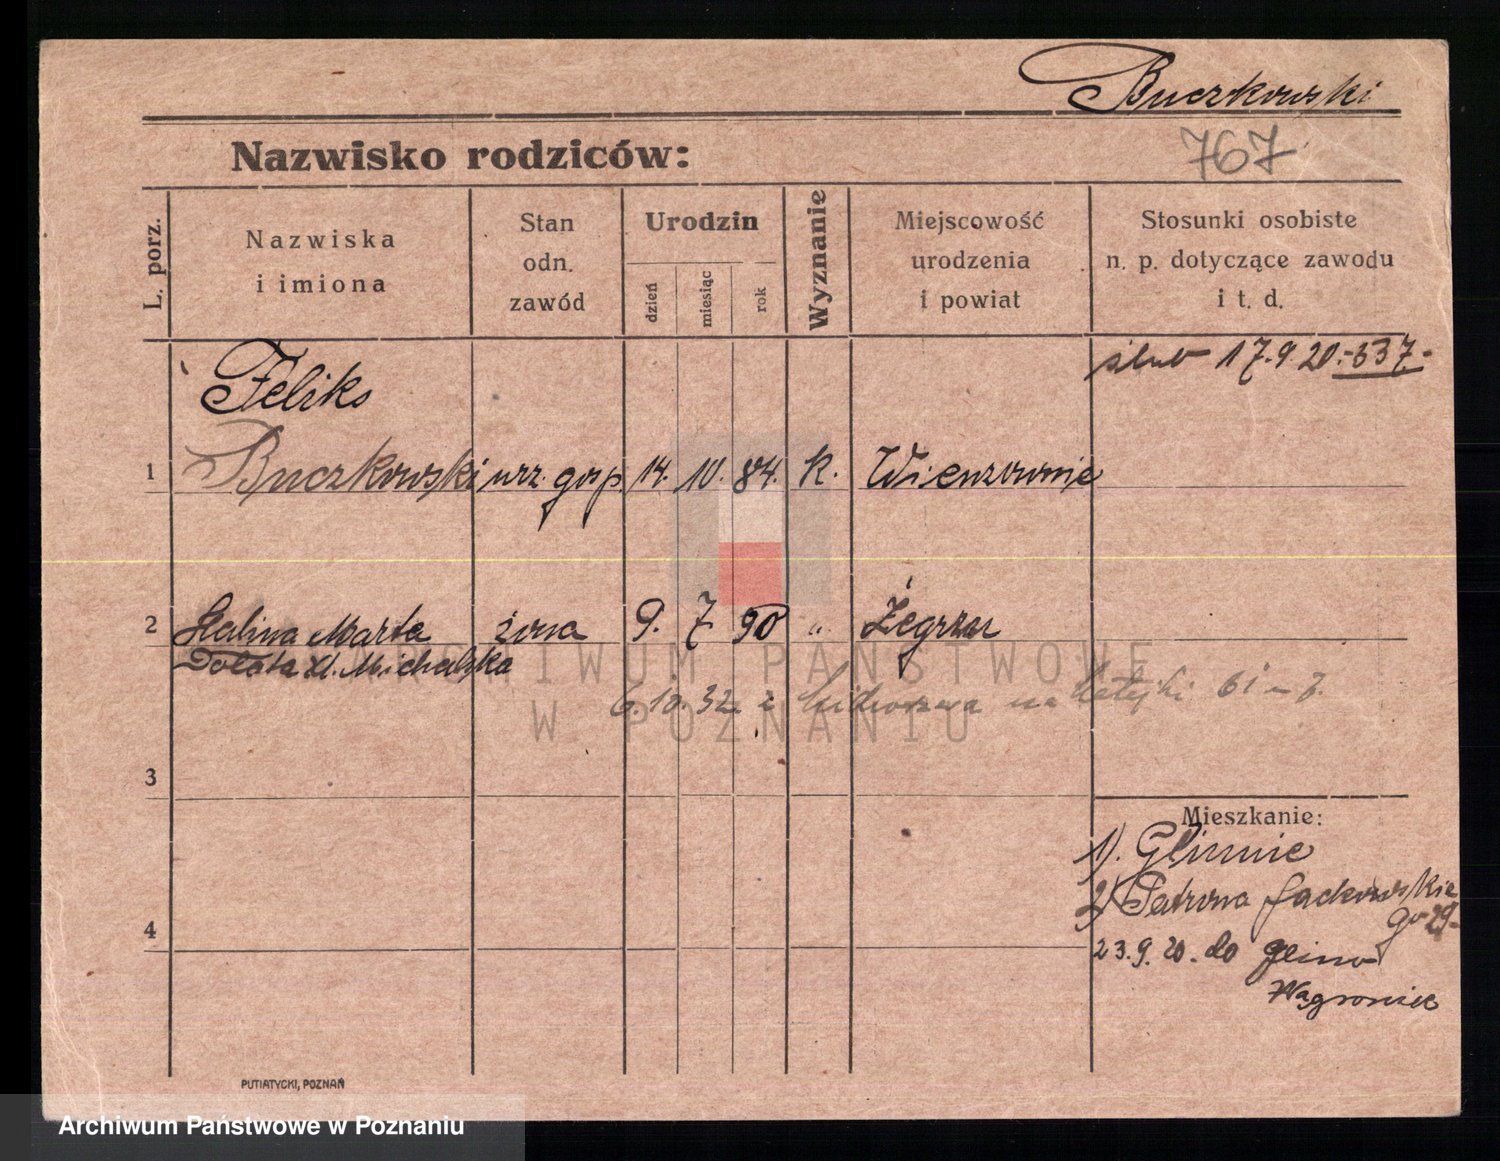 Buczkowski
767
Nazwisko rodziców:
L. porz.
Nazwiska
i imiona
Stan
odn.
zawód
Urodzin
dzień
miesiąc
rok
Wyznanie
Miejscowość
urodzenia
i powiat
Stosunki osobiste
n. p. dotyczące zawodu
i t. d.
ślub 17.9.20.-537.-
Feliks
1 Buczkowski urz. gosp. 14. 10. 84. k.
2 Halina Marta żona 9. 7 90 " Żegrze
Dolata Michalska
6.10.32 z na 61 m 7.
3
Mieszkanie:
1). Glinnie
2) Patrona Jackowskie
go 29-
4
23.9.20. do Glino
Wągrowiec
PUTIATYCKI, POZNAŃ
ARCHIWUM PAŃSTWOWE
W POZNANIU
Archiwum Państwowe w Poznaniu